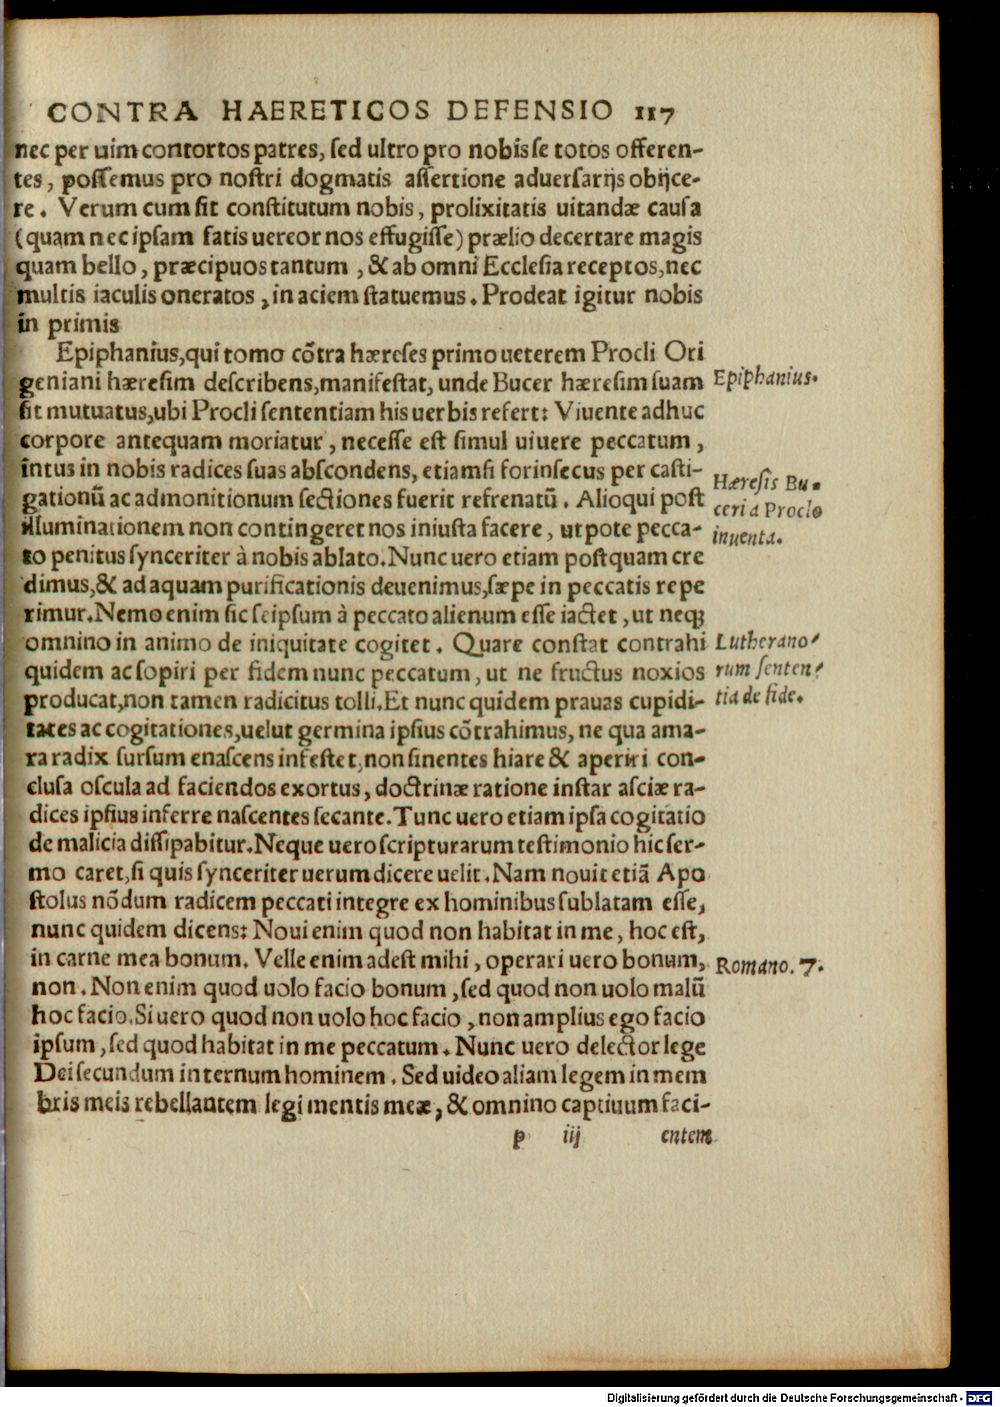 CONTRA HAERETICOS DEFENSIO 117
nec per uim contortos patres, sed ultro pro nobis se totos offeren-
tes, possemus pro nostri dogmatis assertione aduersarijs obijce-
re. Verum cum sit constitutum nobis, prolixitatis uitandæ causa
(quam nec ipsam satis uereor nos effugisse) prælio decertare magis
quam bello, præcipuos tantum, & ab omni Ecclesia receptos, nec
multis iaculis oneratos, in aciem statuemus. Prodeat igitur nobis
in primis
Epiphanius, qui tomo cõtra hæreses primo ueterem Procli Ori
geniani hæresim describens, manifestat, unde Bucer hæresim suam
Epiphanius.
sit mutuatus, ubi Procli sententiam his uerbis refert: Viuente adhuc
corpore antequam moriatur, necesse est simul uiuere peccatum,
intus in nobis radices suas abscondens, etiamsi forinsecus per casti-
Hæresis Bu-
gationũ ac admonitionum sectiones fuerit refrenatũ. Alioqui post
ceri a Proclo
illuminationem non contingeret nos iniusta facere, utpote pecca-
inuenta.
to penitus synceriter à nobis ablato. Nunc uero etiam postquam cre
dimus, & ad aquam purificationis deuenimus, sæpe in peccatis repe
rimur. Nemo enim sic seipsum à peccato alienum esse iactet, ut neqꝫ
omnino in animo de iniquitate cogitet. Quare constat contrahi
Lutherano-
quidem ac sopiri per fidem nunc peccatum, ut ne fructus noxios
rum senten-
producat, non tamen radicitus tolli. Et nunc quidem prauas cupidi-
tia de fide.
tates ac cogitationes, uelut germina ipsius cõtrahimus, ne qua ama-
ra radix sursum enascens infestet, non sinentes hiare & aperiri con-
clusa oscula ad faciendos exortus, doctrinæ ratione instar asciæ ra-
dices ipsius inferre nascentes secante. Tunc uero etiam ipsa cogitatio
de malicia dissipabitur. Neque uero scripturarum testimonio hic ser-
mo caret, si quis synceriter uerum dicere uelit. Nam nouit etiã Apo
stolus nõdum radicem peccati integre ex hominibus sublatam esse,
nunc quidem dicens: Noui enim quod non habitat in me, hoc est,
in carne mea bonum. Velle enim adest mihi, operari uero bonum,
Romano. 7.
non. Non enim quod uolo facio bonum, sed quod non uolo malũ
hoc facio. Si uero quod non uolo hoc facio, non amplius ego facio
ipsum, sed quod habitat in me peccatum. Nunc uero delector lege
Dei secundum internum hominem. Sed uideo aliam legem in mem
bris meis rebellantem legi mentis meæ, & omnino captiuum faci-
p iij entem
Digitalisierung gefördert durch die Deutsche Forschungsgemeinschaft - DFG